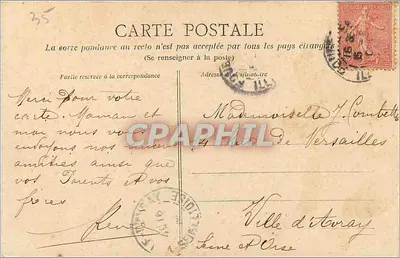 35
CARTE POSTALE
La correspondance au recto n'est pas acceptée par tous les pays étrangers
(Se renseigner à la poste)
Partie réservée à la correspondance
Adresse du destinataire
Merci pour votre
carte. Maman et
moi nous vous
envoyons nos
amitiés ainsi que
vos Parents et vos
frères
René
Mademoiselle J.
de Versailles
Ville d'Avray
Seine et Oise
CPARPHIL